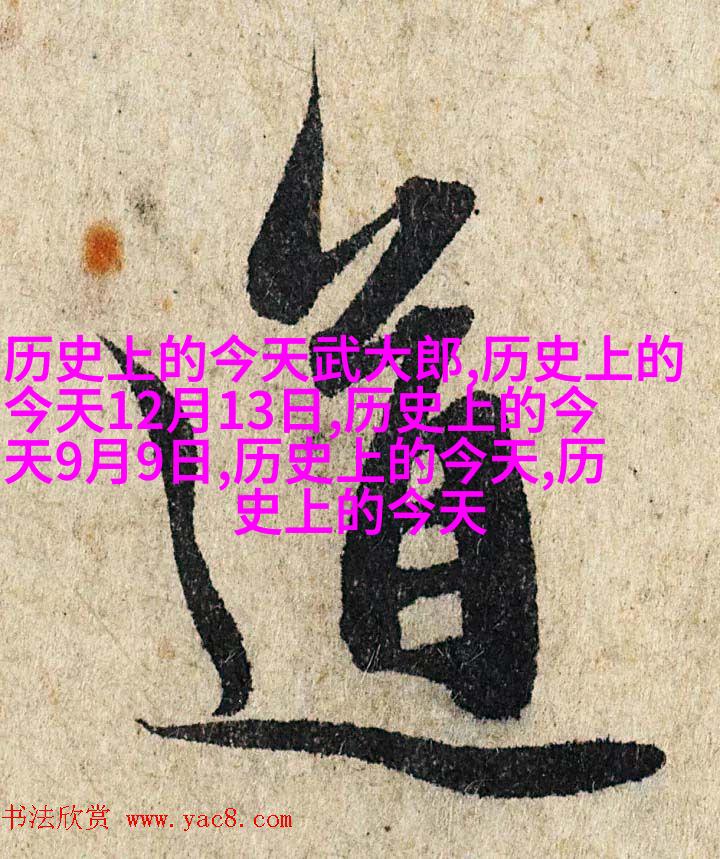 道
历史上的今天武大郎,历史上的
今天12月13日,历史上的今
天9月9日,历史上的今天,历
史上的今天
书法欣赏 www.yac8.com